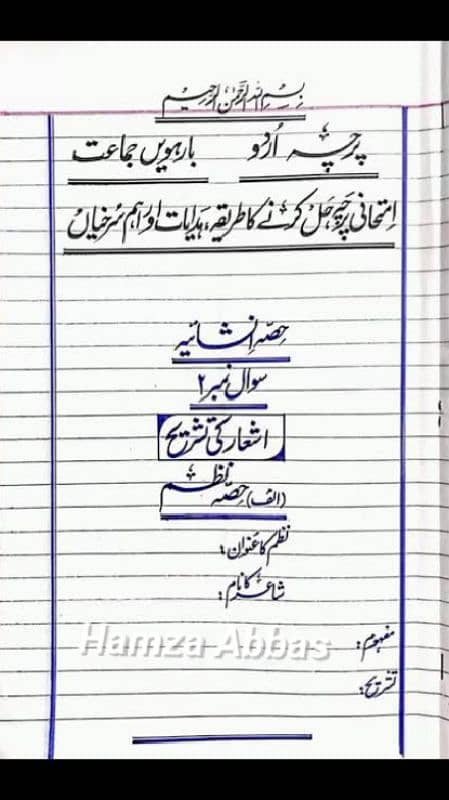 بسم اللہ الرحمٰن الرحیم
پرچہ اُردو بارہویں جماعت
اِمتحانی پرچہ حَل کرنے کا طریقہ، ہدایات اور اہم سُرخیاں
حِصّہ اِنشائیہ
سوال نمبر ۲
اشعار کی تشریح
(الف) حِصّہ نظم
نظم کا عنوان:
شاعر کا نام:
Hamza Abbas
مفہوم:
تشریح: